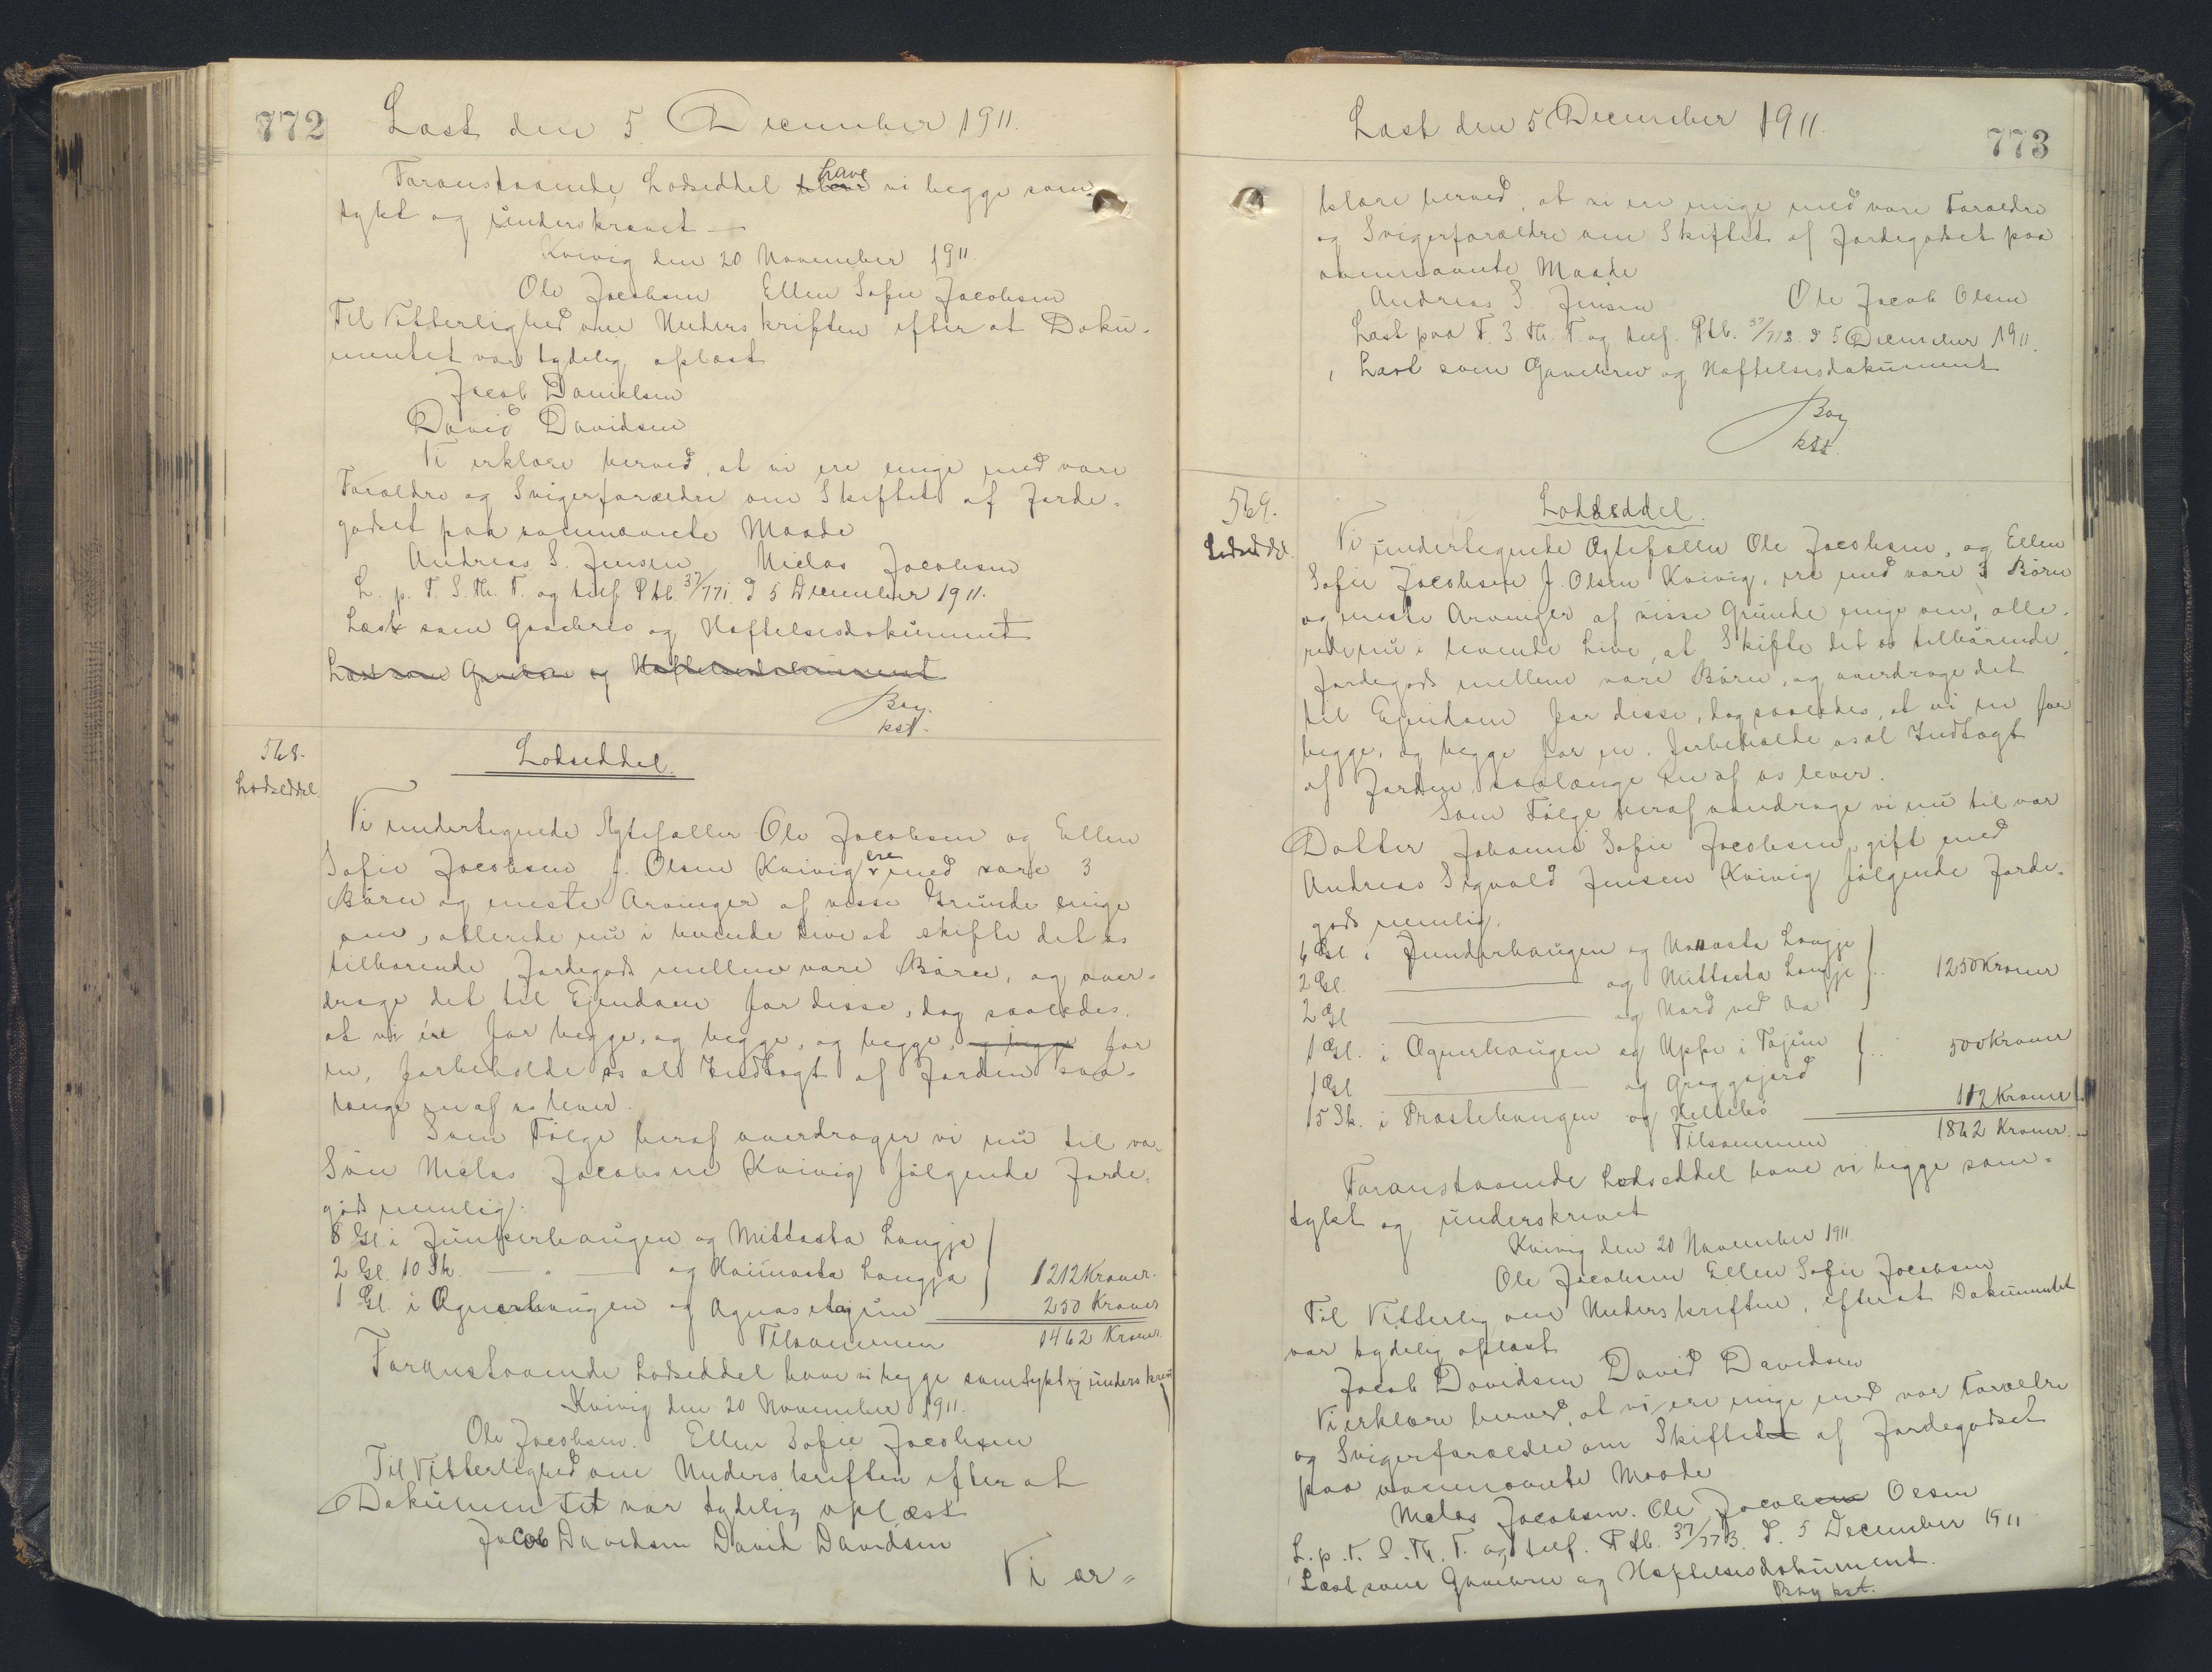 772
Læst den 5 December 1911.
Foranstaaende Lodseddel have vi begge sam-
tykt og underskrevet
Kvivig den 20 November 1911.
Ole Jacobsen Ellen Sofie Jacobsen
Til Vitterlighed om Underskriften efter at Doku-
mentet var tydelig oplæst
Jacob Danielsen
David Davidsen
Vi erklære herved, at vi ere enige med vore
Forældre og Svigerforældre om Skiftet af Jorde-
godset paa ovennævnte Maade
Andreas S. Jensen Niclas Jacobsen
L. p. F. S. Th. T. og tilf. Ptb. 37/771. d 5 December 1911.
Læst som Gavebrev og Hæftelsesdokument
Læst som Gavebrev og Hæftelsesdokument
Bay.
kst.
568.
Lodseddel
Lodseddel.
Vi undertegnede Ægtefæller Ole Jacobsen og Ellen
Sofie Jacobsen f. Olsen Kvivig ere med vore 3
Børn og næste Arvinger af visse Grunde enige
om, allerede nu i levende Live at skifte det os
tilhørende Jordegods mellem vore Børn, og over-
drage det til Ejendom for disse, dog saaledes
at vi en for begge, og begge, og begge, og begge for
en, forbeholde os al Indtægt af Jorden saa-
længe en af os lever.
Som Følge heraf overdrager vi nu til vor
Søn Niclas Jacobsen Kvivig følgende Jorde-
gods nemlig.
8 Gl. i Junkerhaugen og Mittasta Longja
2 Gl. 10 Sk. — " — og Heimasta Longja 1212 Kroner.
1 Gl. i Ognerhaugen og Agnasetagun 250 Kroner
Tilsammen 1462 Kroner.
Foranstaaende Lodseddel have vi begge samtykt og underskrevet
Kvivig den 20 November 1911.
Ole Jacobsen. Ellen Sofie Jacobsen
Til Vitterlighed om Underskriften efter at
Dokumentet var tydelig oplæst
Jacob Davidsen David Davidsen
Vi er=
773
Læst den 5 December 1911.
klære herved, at vi ere enige med vore Forældre
og Svigerforældre om Skiftet af Jordegodset paa
ovennævnte Maade
Andreas S. Jensen Ole Jacob Olsen
Læst paa F. S. Th. T. og tilf. Ptb. 37/772. d 5 December 1911.
Læst som Gavebrev og Hæftelsesdokument
Bay
kst.
569.
Lodseddel.
Lodseddel.
Vi undertegnede Ægtefæller Ole Jacobsen, og Ellen
Sofie Jacobsen f. Olsen Kvivig, ere med vore 3 Børn
og næste Arvinger af visse Grunde enige om, alle-
rede nu i levende Live, at Skifte det os tilhørende
Jordegods mellem vore Børn, og overdrage det
til Ejendom for disse, dog saaledes, at vi en for
begge, og begge for en, forbeholde os al Indtægt
af Jorden, saalænge en af os lever.
Som Følge heraf overdrage vi nu til vor
Datter Johanne Sofie Jacobsen, gift med
Andreas Sigvald Jensen Kvivig følgende Jorde-
gods nemlig.
6 Gl. i Junkerhaugen og Norasta Longje
2 Gl. — og Mittasta Longje 1250 Kroner
2 Gl — og Nord ved Aa
1 Gl. i Ognerhaugen og Uppe i Tojun 500 Kroner
1 Gl — og Groggagjerd
15 Sk. i Præstehaugen og Hellebø 112 Kroner
Tilsammen 1862 Kroner.
Foranstaaende Lodseddel have vi begge sam-
tykt og underskrevet
Kvivig den 20 November 1911.
Ole Jacobsen Ellen Sofie Jacobsen
Til Vitterlig om Underskriften, efter at Dokumentet
var tydelig oplæst
Jacob Davidsen David Davidsen
Vi erklære herved, at vi ere enige med vor Forældre
og Svigerforældre om Skiftet af Jordegodset
paa ovennævnte Maade
Niclas Jacobsen. Ole Jacobsen Olsen
L. p. F. S. Th. T. og tilf. Ptb. 37/773. d. 5 December 1911
Læst som Gavebrev og Hæftelsesdokument.
Bay kst.